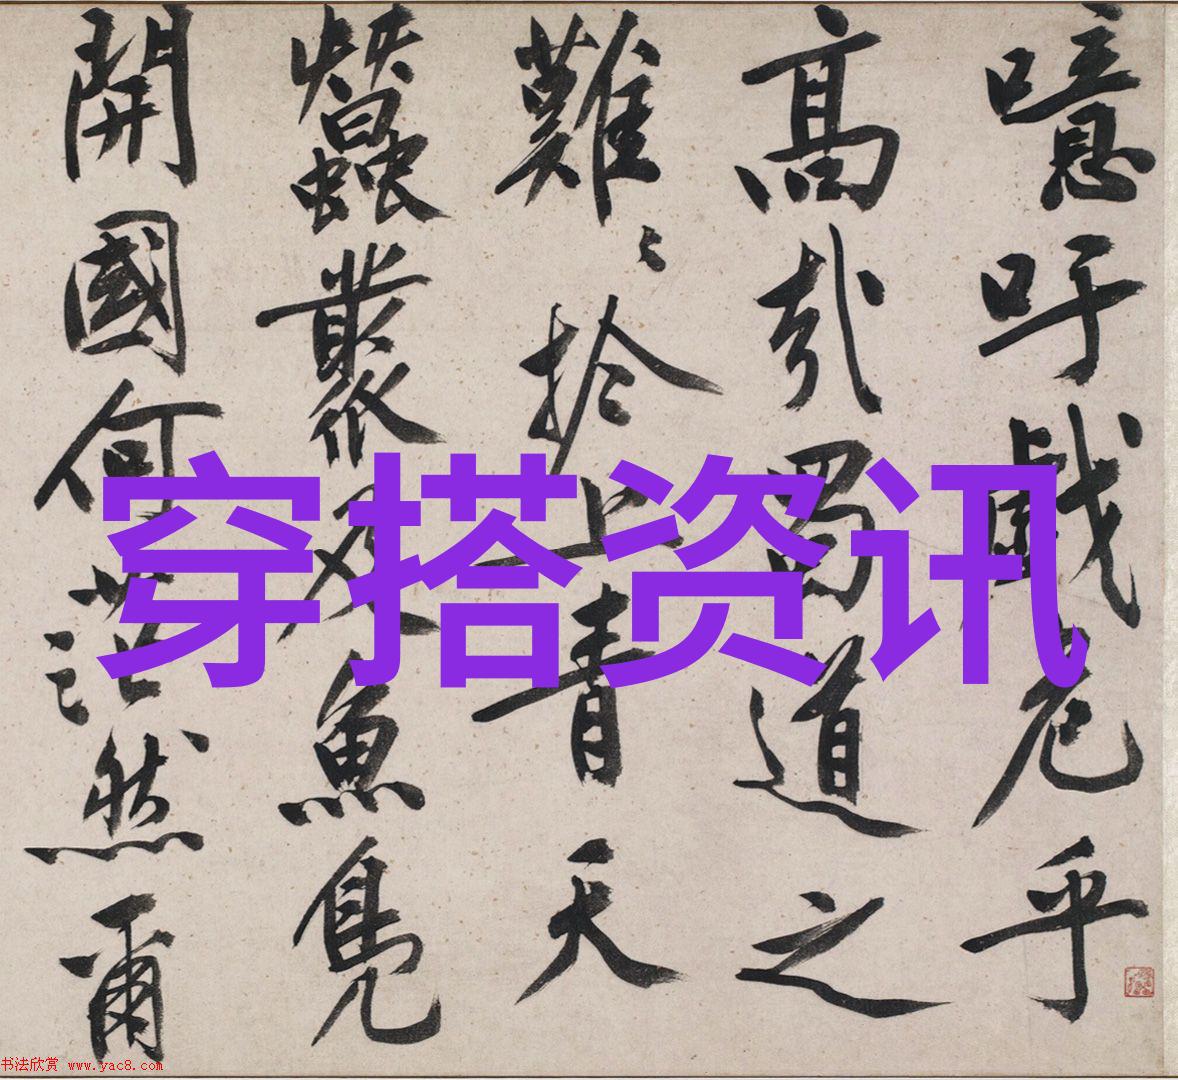 噫吁戲危乎
髙哉蜀道之
難〻扵上青天
蠶叢及魚鳧
開國何茫然爾
穿搭资讯
书法欣赏 www.yac8.com